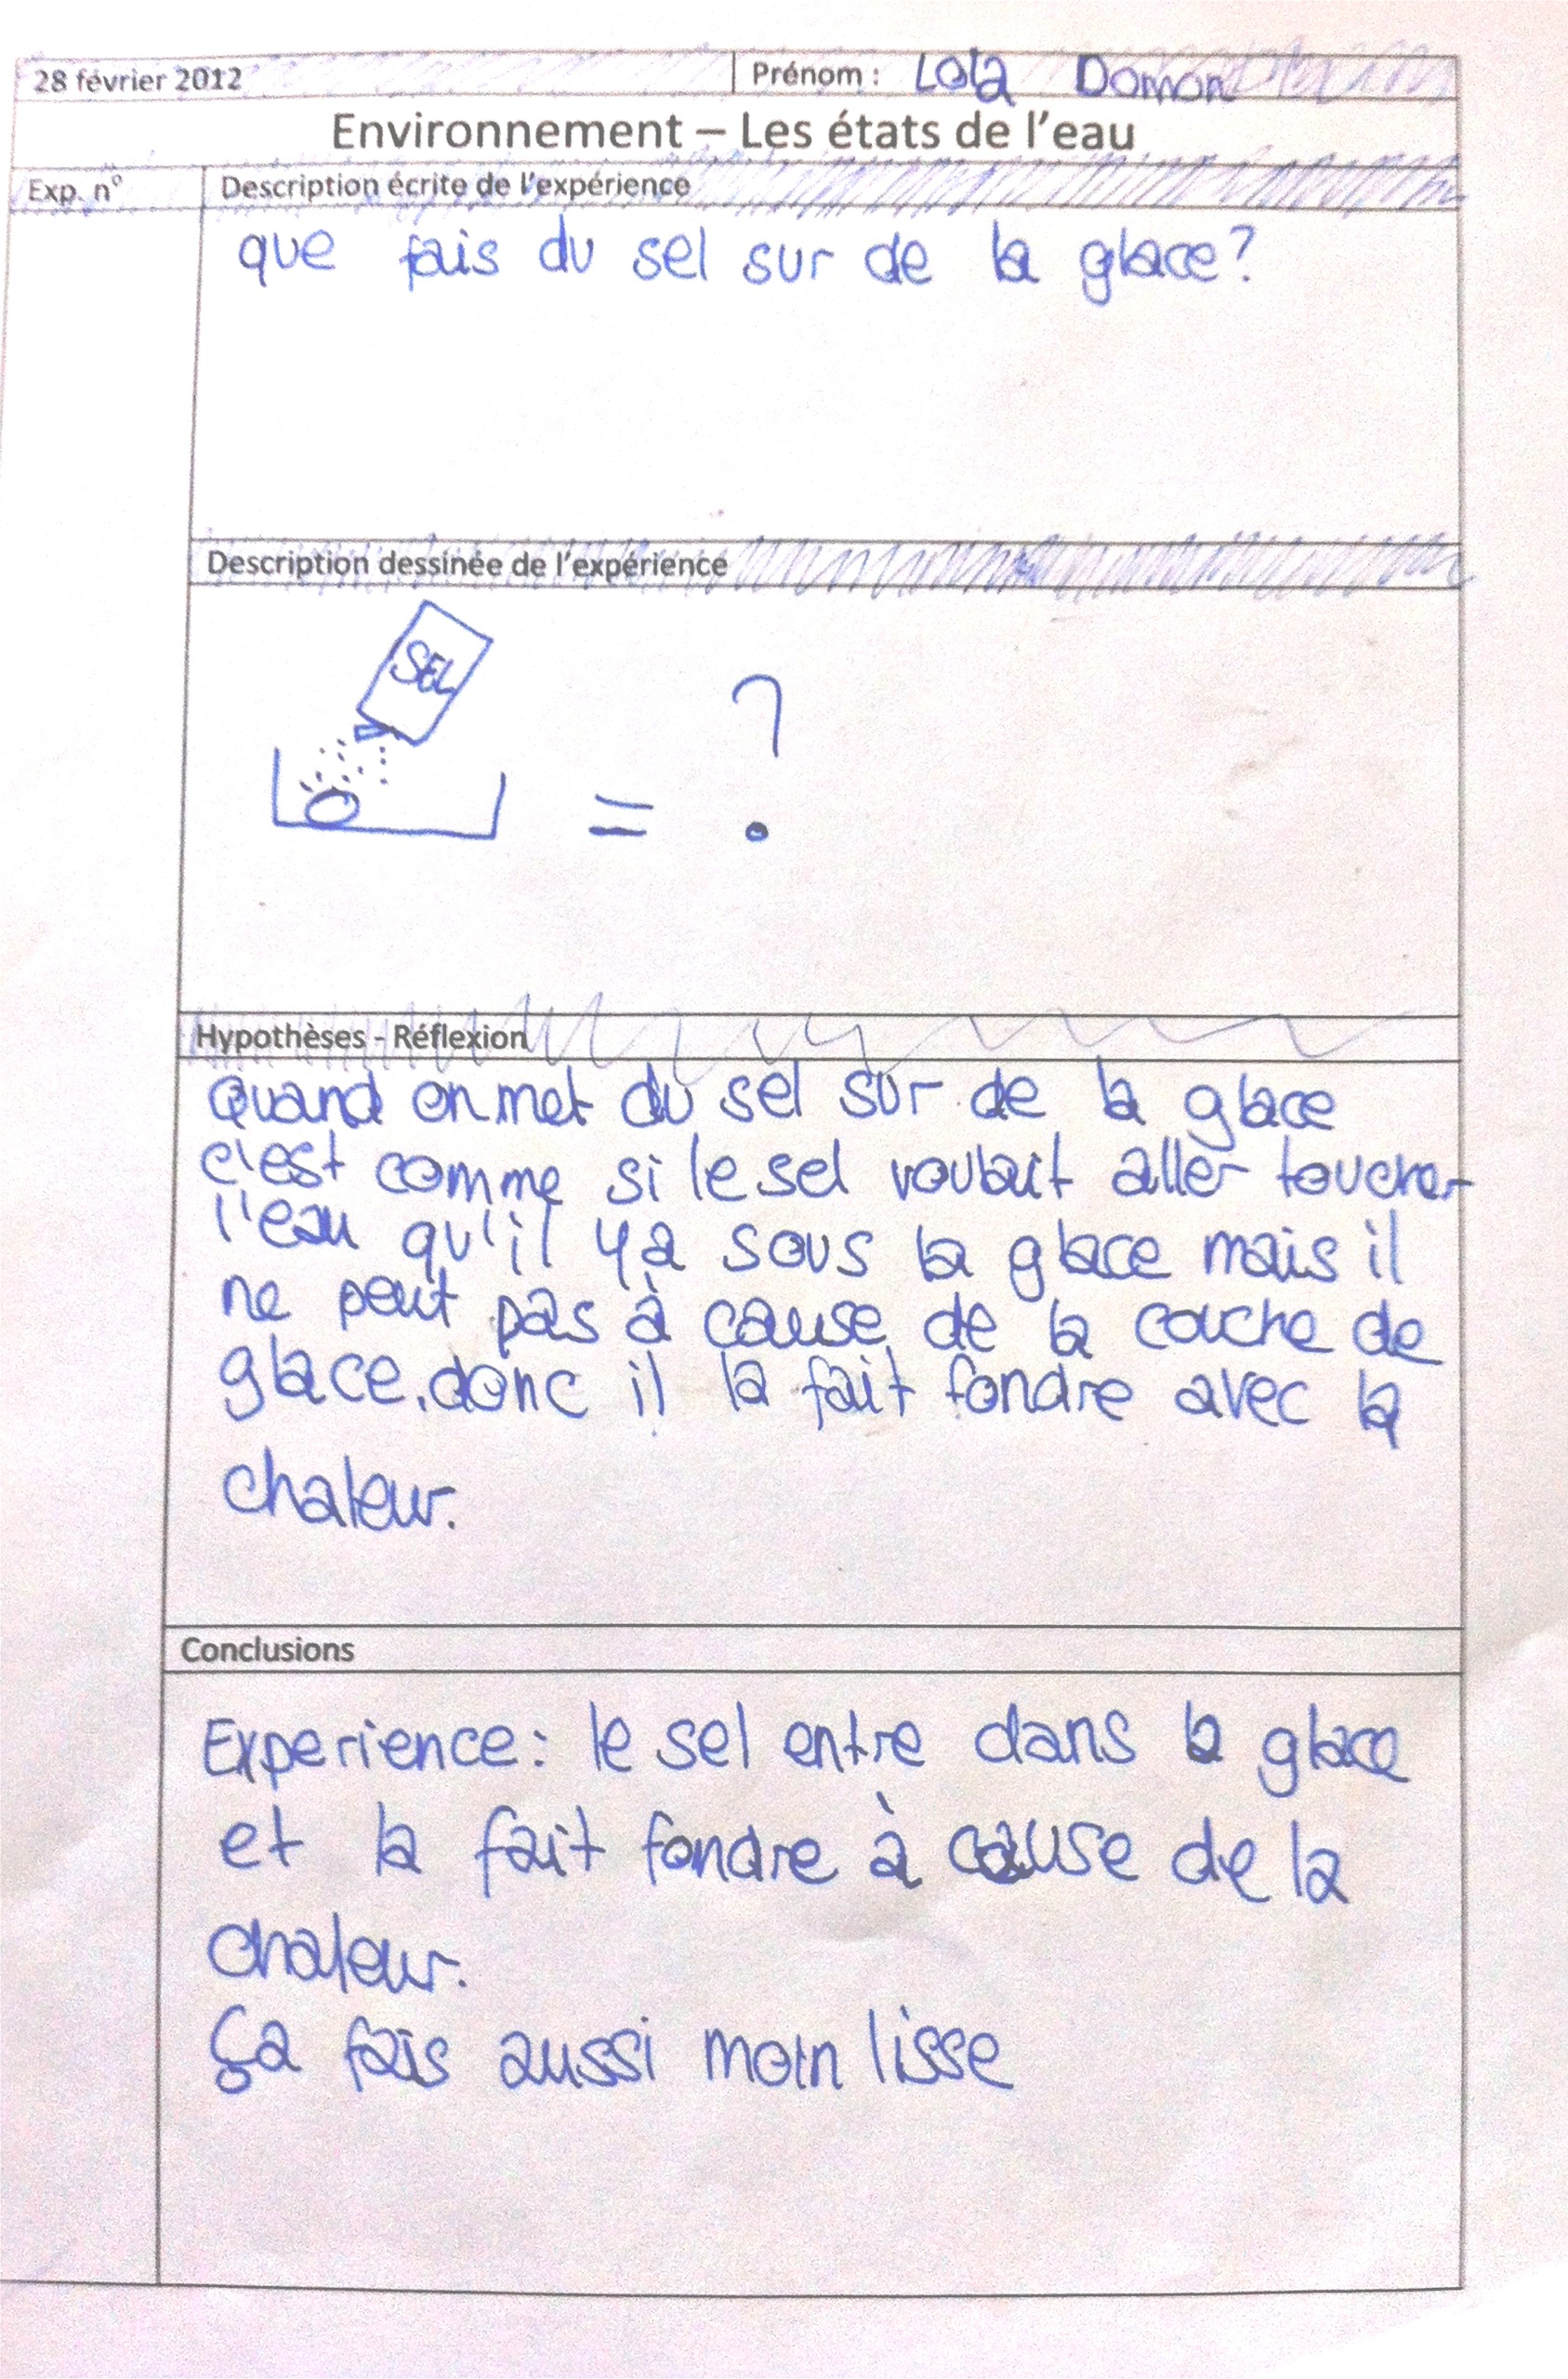 28 février 2012 Prénom : Lola Domon
Environnement – Les états de l'eau
Exp. n° Description écrite de l'expérience
que fais du sel sur de la glace?
Description dessinée de l'expérience
SEL
= ?
Hypothèses - Réflexion
Quand on met du sel sur de la glace
c'est comme si le sel voulait aller toucher
l'eau qu'il y a sous la glace mais il
ne peut pas à cause de la couche de
glace, donc il la fait fondre avec la
chaleur.
Conclusions
Experience: le sel entre dans la glace
et la fait fondre à cause de la
chaleur.
ça fais aussi moin lisse